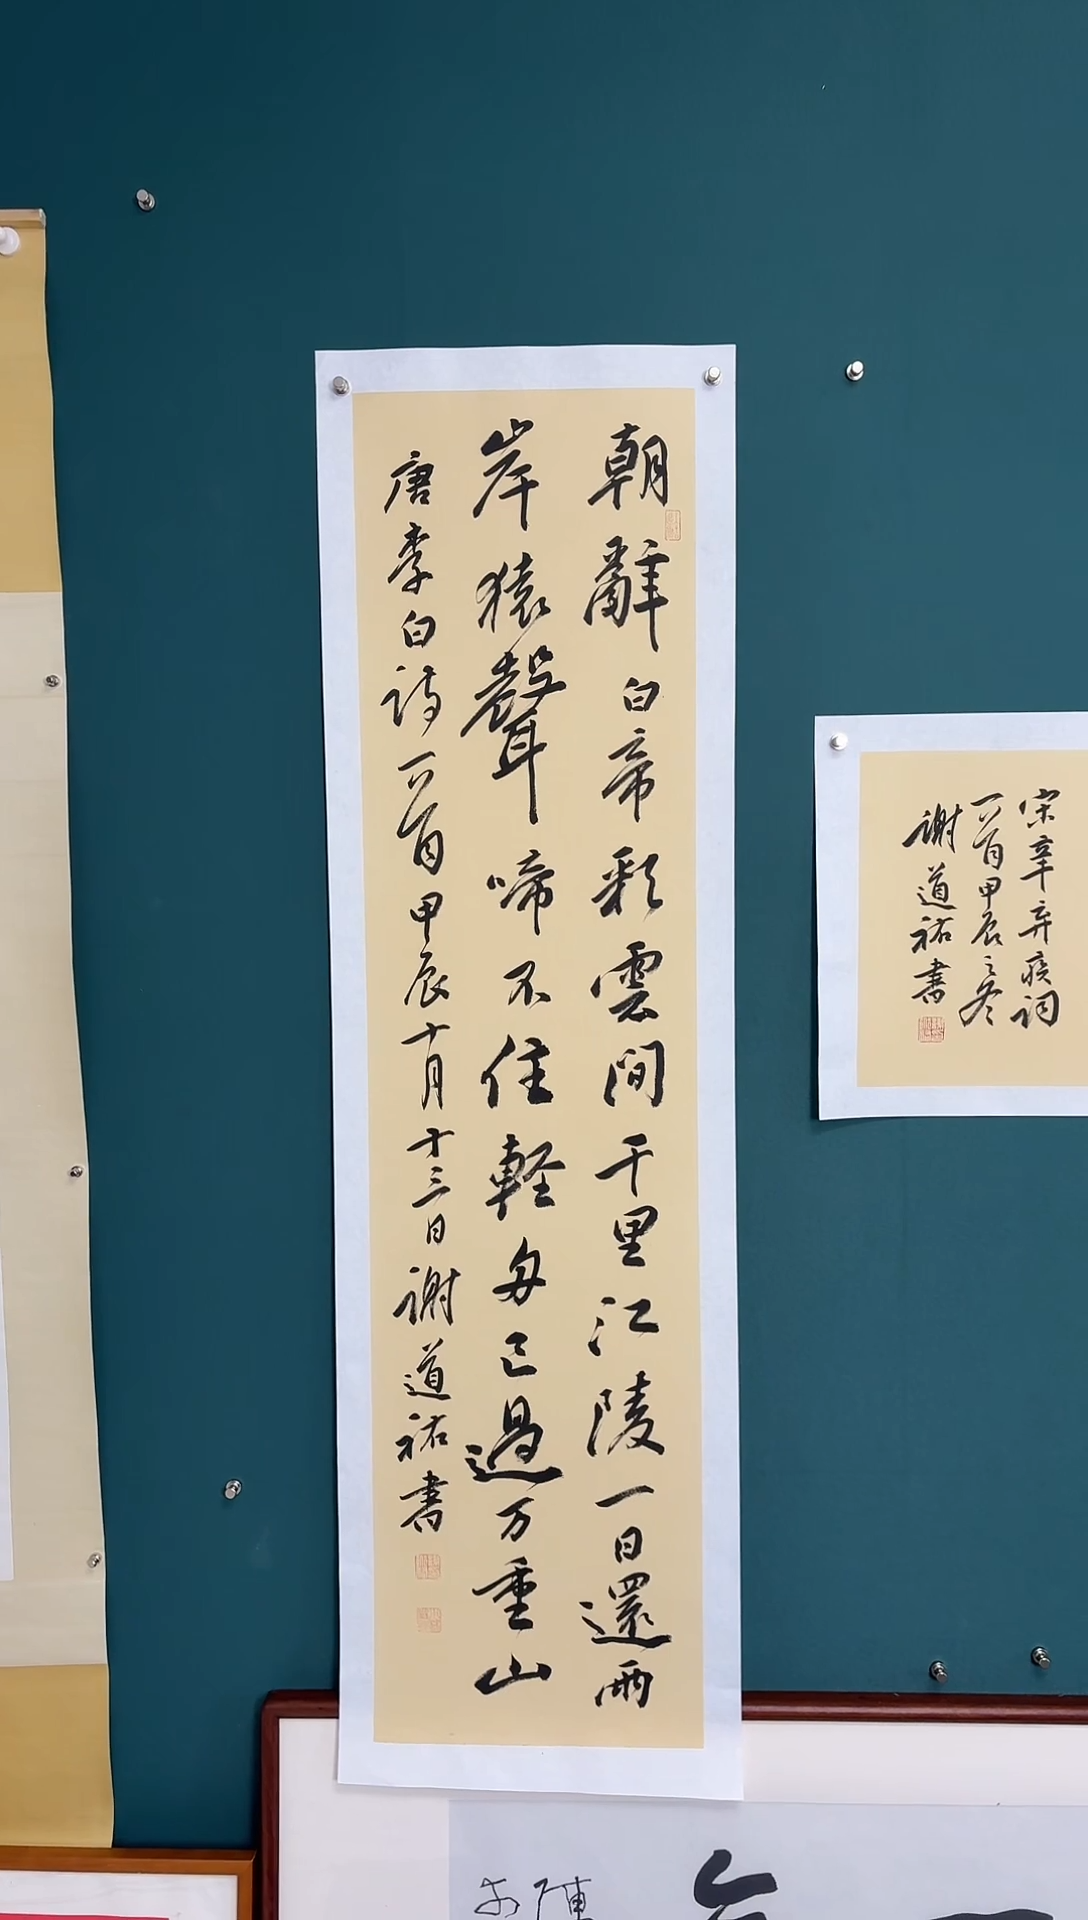 朝辭白帝彩雲間千里江陵一日還兩
岸猿聲啼不住軽舟已過万重山
唐李白詩一首甲辰十月十三日謝道祐書
宋辛弃疾詞
一首甲辰之冬
謝道祐書